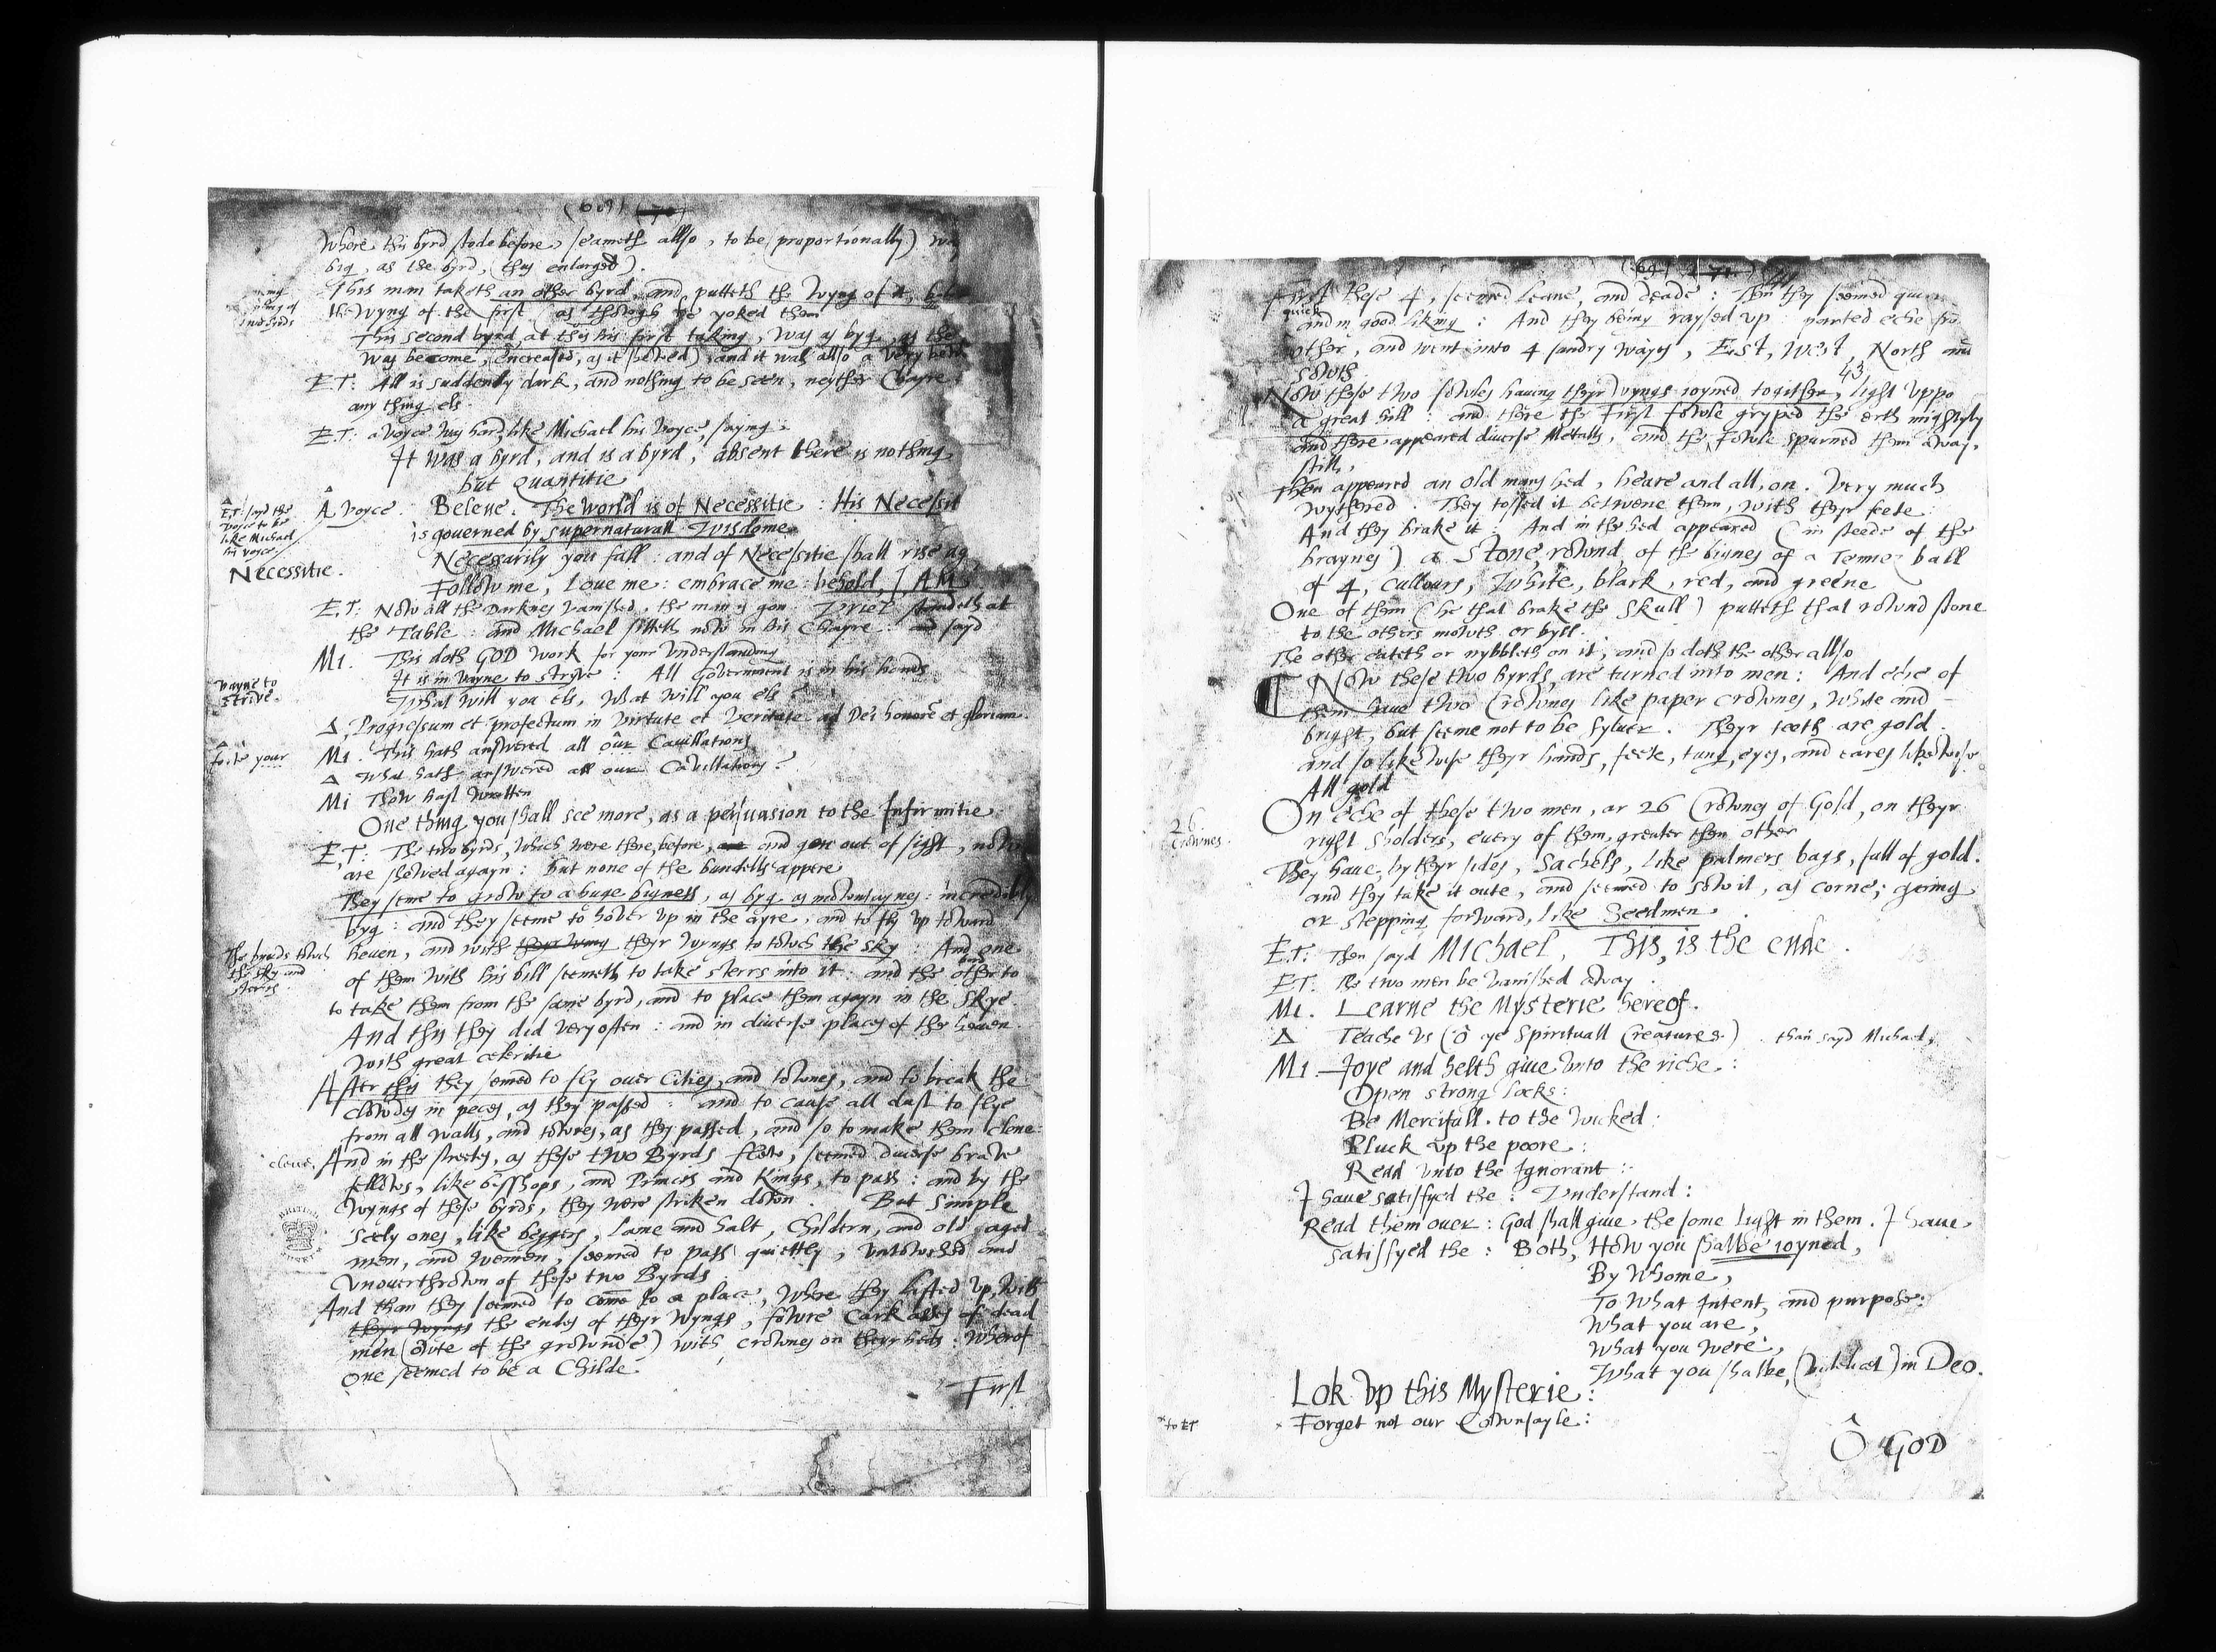 Where this byrd stode before, seameth allso, to be (proportionally)
big, as the byrd, (thus enlarged).
This man taketh an other byrd, and putteth the wyng of it,
the wyng of the first as though he yoked them
This second byrd, at this his first taking, was as byg, as the
was become, (encreased, as it shewed), and it was allso a very
E.T: All is suddenly dark, and nothing to be seen, neyther Chayre
any thing els.
E.T: a voyce was hard, like Michael his voyce, saying:
It was a byrd, and is a byrd, absent there is nothing
but Quantitie
Δ
E.T: sayd the
voyce to be
like Michael
his voyce
A voyce. Beleue. The world is of Necessitie: His Necessit
is governed by supernaturall Wisdome.
Necessarily you fall: and of Necessitie shall rise ag
Necessitie.
Follow me, Loue me: embrace me: behold, I AM
E.T: Now all the Darknes vanished, the man is gon. Vriel standeth at
the Table: and Michael sitteth now in his Chayre: and sayd
Mi. This doth GOD work for your vnderstanding
It is in vayne to stryve: All Gouernment is in his hands
vayne to
strive.
What will you els, What will you els?
Δ Progressum et profectum in virtute et veritate ad Dei honorē et gloriam.
Mi. This hath answered all our Cauillations
Δ
for your
Δ What hath answered all our Cavillations?
Mi Thow hast written
One thing you shall see more, as a perswasion to the Infirmitie
E.T: The two byrds, which were there before, and gon out of sight, now
are shewed agayn: but none of the bundells appere
They seme to grow to a huge bignes, as byg as mowntaynes: incredibly
byg: and they seeme to hover up in the ayre, and to fly up toward
heven, and with theyr wyng theyr wyngs to towch the sky: And one
The byrds towch
the sky and
sterrs.
of them with his bill seemeth to take sterrs into it: and the other to
to take them from the same byrd, and to place them agayn in the Skye.
And this they did very often: and in diuerse places of the heaven
with great celeritie
After this they semed to fly over Cities, and townes, and to break the
clowdes in peces, as they passed: and to cause all dust to flye
from all walls, and towres, as they passed, and so to make them clene.
clene.
And in the streetes, as these two Byrds flew, seemed diuerse brave
fellows, like bisshops, and Princis and Kings, to pass: and by the
wyngs of these byrds, they were striken down. But Simple
Seely ones, like beggers, lame and halt, Childern, and old aged
men, and wemen, seemed to pass quietly, vntowched and
vnouerthrown of these two Byrds
And than they seemed to come to a place, where they lifted up, with
theyr wyngs the endes of theyr wyngs, fowre Carkasses of dead
men (owte of the grownde) with crownes on theyr heds: wherof
one seemed to be a Childe.
First
First these 4, seemed leane, and deade: Then they seemed
quick
and in good liking: And they being raysed up: parted eche
other, and went into 4 sundry wayes, Est, West, North and
Sowth.
43
Now these two fowles hauing theyr wyngs ioyned togither, light vppo
a great hill: and there the First fowle gryped the erth mightyly
and there appeared diuerse Metalls, and the Fowle spurned them away,
still,
Then appeared an old mans hed, heare and all, on. Very much
wythered. They tossed it betwene them, with theyr feete:
And they brake it: And in the hed appeared (in steede of the
braynes) a Stone, rownd, of the bignes of a Tennez ball
of 4, cullours, White, black, red, and greene
One of them (he that brake the Skull) putteth that rownd stone
to the others mowth or byll.
The other eateth or nybbleth on it, and so doth the other allso
Now these two byrds, are turned into men: And eche of
them haue two Crownes like paper crownes, white and
bright, but seeme not to be syluer. Theyr teeth are gold
and so likewise theyr hands, feete, tung, eyes, and eares likewise
All gold
On eche of these two men, ar 26 Crownes of Gold, on theyr
26
Crownes.
right Sholders, euery of them, greater then other
They haue, by theyr sides, Sachels, like palmers bags, full of gold.
and they take it oute, and seemed to sow it, as corne, going
or stepping forward, like Seedmen
E.T: Then sayd Michael, This, is the ende.
E.T: The two men be vanished away.
Mi. Learne the Mysterie hereof.
Δ Teache vs (ô ye Spirituall Creatures.) than sayd Michael,
Mi. Joye and helth giue vnto the riche:
Open strong locks:
Be Mercifull to the wicked:
Pluck up the poore:
Read vnto the Ignorant:
I haue satisfyed the: Vnderstand:
Read them over: God shall giue the some light in them. I haue
satisfyed the: Both, How you shalbe ioyned,
By Whome,
To What Intent, and purpose:
What you are,
What you were,
What you shalbe, (videlicet) in Deo.
Lok vp this Mysterie:
*to ET
Forget not our Cownsayle:
Ô GOD